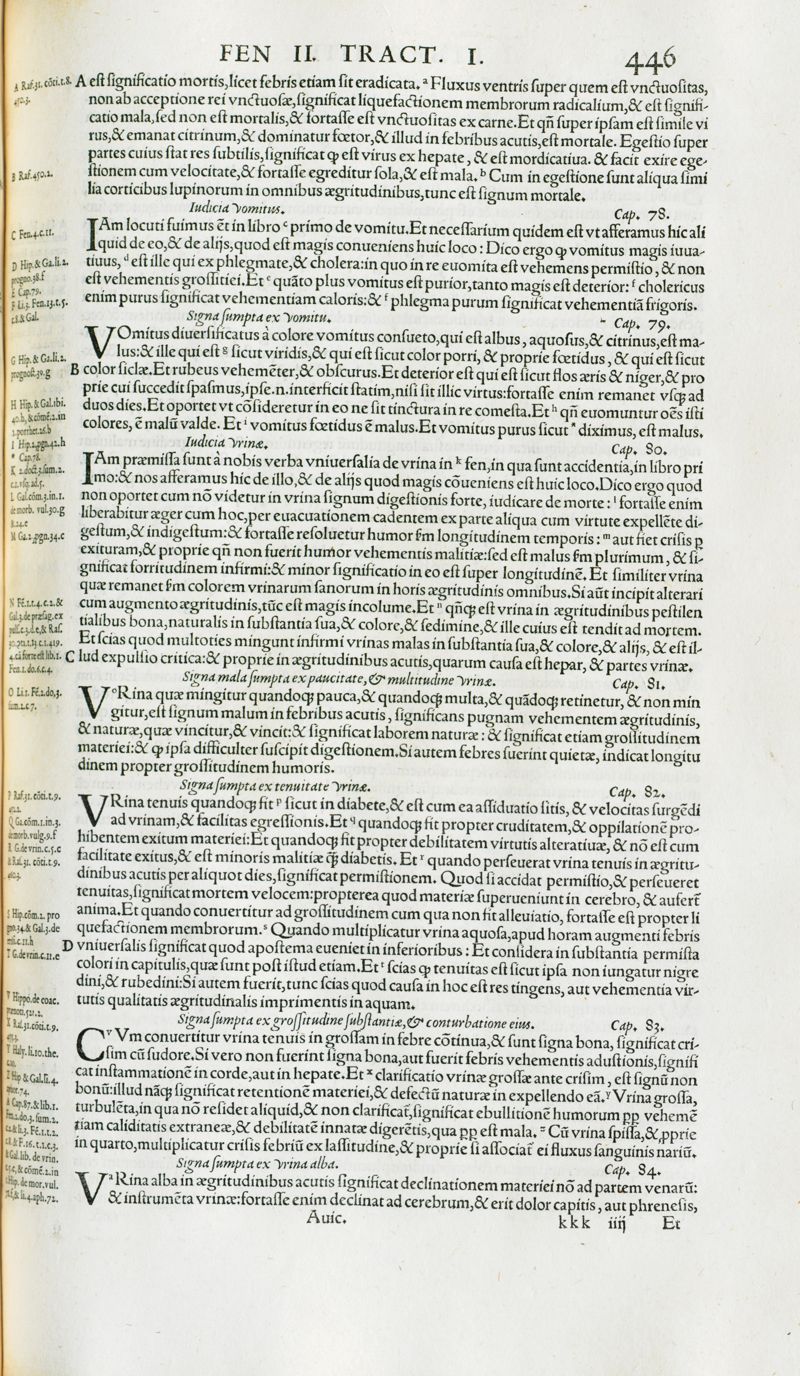 FEN II. TRACT. I. 446
A est significatio mortis, licet febris etiam sit eradicata. ª Fluxus ventris super quem est vnctuositas,
non ab acceptione rei vnctuosæ, significat liquefactionem membrorum radicalium, & est signifi-
catio mala, sed non est mortalis, & fortasse est vnctuositas ex carne. Et qñ super ipsam est simile vi
rus, & emanat citrinum, & dominatur fœtor, & illud in febribus acutis, est mortale. Egestio super
partes cuius stat res subtilis, significat ꝙ est virus ex hepate, & est mordicatiua. & facit exire ege-
stionem cum velocitate, & fortasse egreditur sola, & est mala. ᵇ Cum in egestione sunt aliqua simi
lia corticibus lupinorum in omnibus ægritudinibus, tunc est signum mortale.
Iudicia vomitus. Cap. 78.
IAm locuti fuimus ēt in libro ᶜ primo de vomitu. Et necessarium quidem est vt afferamus hic ali
quid de eo, & de alijs, quod est magis conueniens huic loco: Dico ergo ꝙ vomitus magis iuua-
tiuus, ᵈ est ille qui ex phlegmate, & cholera: in quo in re euomita est vehemens permistio, & non
est vehementis grossitiei. Et ᵉ quāto plus vomitus est purior, tanto magis est deterior: ᶠ cholericus
enim purus significat vehementiam caloris: & ᶠ phlegma purum significat vehementiā frigoris.
Signa sumpta ex vomitu. Cap. 79.
VOmitus diuersificatus à colore vomitus consueto, qui est albus, aquosus, & citrinus, est ma-
lus: & ille qui est ᵍ sicut viridis, & qui est sicut color porri, & proprie fœtidus, & qui est sicut
B color siclæ. Et rubeus vehemēter, & obscurus. Et deterior est qui est sicut flos æris & niger, & pro
prie cui succedit spasmus, ipse .n. interficit statim, nisi sit illic virtus: fortasse enim remanet vsq; ad
duos dies. Et oportet vt cōsideretur in eo ne sit tinctura in re comesta. Et ʰ qñ euomuntur oēs isti
colores, ē malū valde. Et ⁱ vomitus fœtidus ē malus. Et vomitus purus sicut * diximus, est malus.
Iudicia vrinæ. Cap. 80.
IAm præmissa sunt à nobis verba vniuersalia de vrina in ᵏ fen, in qua sunt accidentia, in libro pri
mo: & nos afferamus hic de illo, & de alijs quod magis cōueniens est huic loco. Dico ergo quod
non oportet cum nō videtur in vrina signum digestionis forte, iudicare de morte: ˡ fortasse enim
liberabitur æger cum hoc, per euacuationem cadentem ex parte aliqua cum virtute expellēte di-
gestum, & indigestum: & fortasse resoluetur humor fm longitudinem temporis: ᵐ aut fiet crisis ꝑ
exituram, & proprie qñ non fuerit humor vehementis malitiæ: sed est malus fm plurimum, & si-
gnificat forritudinem infirmi: & minor significatio in eo est super longitudinē. Et similiter vrina
quæ remanet fm colorem vrinarum sanorum in horis ægritudinis omnibus. Si aūt incipit alterari
cum augmento ægritudinis, tūc est magis incolume. Et ⁿ qñq; est vrina in ægritudinibus pestilen
tialibus bona, naturalis in substantia sua, & colore, & sedimine, & ille cuius est tendit ad mortem.
Et scias quod multoties mingunt infirmi vrinas malas in substantia sua, & colore, & alijs, & est il-
C lud expulsio critica: & proprie in ægritudinibus acutis, quarum causa est hepar, & partes vrinæ.
Signa mala sumpta ex paucitate, & multitudine vrinæ. Cap. 81.
VᵒRina quæ mingitur quandoq; pauca, & quandoq; multa, & quādoq; retinetur, & non min
gitur, est signum malum in febribus acutis, significans pugnam vehementem ægritudinis,
& naturæ, quæ vincitur, & vincit: & significat laborem naturæ: & significat etiam grossitudinem
materiei: & ꝙ ipsa difficulter suscipit digestionem. Si autem febres fuerint quietæ, indicat longitu
dinem propter grossitudinem humoris.
Signa sumpta ex tenuitate vrinæ. Cap. 82.
VRina tenuis quandoq; fit ᵖ sicut in diabete, & est cum ea assiduatio sitis, & velocitas surgēdi
ad vrinam, & facilitas egressionis. Et ᑫ quandoq; fit propter cruditatem, & oppilationē pro-
hibentem exitum materiei: Et quandoq; fit propter debilitatem virtutis alteratiuæ, & nō est cum
facilitate exitus, & est minoris malitiæ ꝗ̃ diabetis. Et ʳ quando perseuerat vrina tenuis in ægritu-
dinibus acutis per aliquot dies, significat permistionem. Quod si accidat permistio, & perseueret
tenuitas, significat mortem velocem: propterea quod materiæ superueniunt in cerebro, & aufert̃
anima. Et quando conuertitur ad grossitudinem cum qua non fit alleuiatio, fortasse est propter li
quefactionem membrorum. ˢ Quando multiplicatur vrina aquosa, apud horam augmenti febris
D vniuersalis significat quod apostema eueniet in inferioribus: Et considera in substantia permista
colori in capitulis, quæ sunt post istud etiam. Et ᵗ scias ꝙ tenuitas est sicut ipsa non iungatur nigre
dini, & rubedini: Si autem fuerit, tunc scias quod causa in hoc est res tingens, aut vehementia vir-
tutis qualitatis ægritudinalis imprimentis in aquam.
Signa sumpta ex grossitudine substantiæ, & conturbatione eius. Cap. 83.
CᵛVm conuertitur vrina tenuis in grossam in febre cōtinua, & sunt signa bona, significat cri-
sim cū sudore. Si vero non fuerint signa bona, aut fuerit febris vehementis adustionis, signifi
cat inflammationē in corde, aut in hepate. Et ˣ clarificatio vrinæ grossæ ante crisim, est signū non
bonū: illud nāq; significat retentionē materiei, & defectū naturæ in expellendo eā. ʸ Vrina grossa,
turbulēta, in qua nō residet aliquid, & non clarificat̃, significat ebullitionē humorum ꝓꝑ vehemē
tiam caliditatis extraneæ, & debilitatē innatæ digerētis, qua ꝓꝑ est mala. ᶻ Cū vrina spissa, & ꝓprie
in quarto, multiplicatur crisis febriū ex lassitudine, & proprie si associat̃ ei fluxus sanguinis nariū.
Signa sumpta ex vrina alba. Cap. 84.
VªRina alba in ægritudinibus acutis significat declinationem materiei nō ad partem venarū:
& instrumēta vrinæ: fortasse enim declinat ad cerebrum, & erit dolor capitis, aut phrenesis,
Auic. kkk iiij Et
A Raf. 31. cōti. t. 8.
450. 3.
B Raf. 450. 2.
C Fen. 4. c. 11.
D Hip. & Ga. li. 2.
progno. 38. f
E Cap. 79.
F Li. 3. Fen. 13. t. 5.
c. 8. & Gal.
G Hip. & Ga. li. 2.
prognost. 39. g
H Hip. & Gal. ibi.
40. h, & cōmē. 2. in
1. porrhet. 26. b
I Hip. 2. pgn. 42. h
* Cap. 78.
K 2. doct. 3. sum. 2.
c. 1. vsq; ad. 5.
L Gal. com. 3. in. 1.
de morb. vul. 30. g
& 24. c
M Ga. 2. pgn. 34. c
N Fē. 1. t. 4. c. 2. &
Gal. 3. de præsag. ex
pulf. c. 3. d. e, & Raf.
4. cā forte est lib. 1.
Fen. 1. do. 6. c. 4.
O Li. 1. Fē. 2. do. 3.
sum. 2. c. 7.
P Raf. 31. cōti. t. 9.
Q Ga. com. 1. in. 3.
de morb. vulg. 9. f
R G. de vrin. c. 5. c
& Raf. 31. cōti. t. 9.
S Hip. cōm. 2. pro
gno. 34. & Gal. 3. de
T G. de vrin. c. 11. e
V Hippo. de coac.
X Raf. 31. cōti. t. 9.
Y Haly. li. 10. the.
Z Hip & Gal. li. 4.
A Cap. 87. & lib. 1.
Fen. 2. do. 3. sum. 2.
c. 2. & li. 3. Fē. 1. t. 2.
& Gal. lib. de vrin.
Hip. de mor. vul.
76. f, & li. 4. aph. 72.